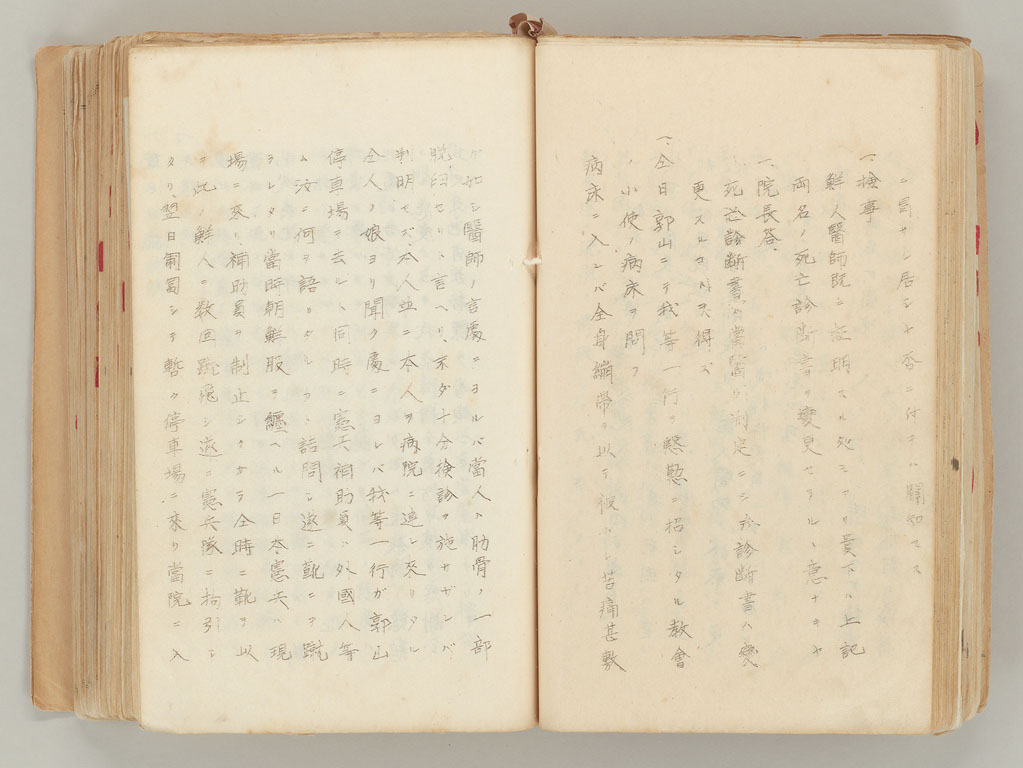 ニ冒サレ居シヤ否ニ付テハ關知セス
一、檢事
鮮人醫師既ニ証明スル処ニアリ貴下ハ上記
両名ノ死亡診断書ヲ變更セラルヽ意ナキヤ
一、院長答、
死亡診断書ハ當醫ノ判定ニシテ診断書ハ變
更スルコトヲ得ズ
一、仝日郭山ニテ我等一行ヲ慇懃ニ招シタル教會
小使ノ病床ヲ問フ
病床ニ入レバ全身繃帯ヲ以テ被ハレ苦痛甚敷
ゲナシ醫師ノ言處ニヨルバ當人ハ肋骨ノ一部
脱臼セリト言ヘリ、未ダ十分檢診ヲ施サザレバ
判明セズ、本人並ニ本人ヲ病院ニ連レ來リタル
仝人ノ娘ヨリ聞ク處ニヨレバ我等一行ガ郭山
停車場ニ去ルト同時ニ憲兵補助員ハ外國人等
ハ汝ニ何ヲ語リタルヤヲ詰問シ遂ニ靴ニテ蹴
ラレタリ當時朝鮮服ヲ纏ヘル一日本憲兵ハ現
場ニ來リ補助員ヲ制止シナガラ仝時ニ靴ヲ以
テ此ノ鮮人ヲ数回蹴飛シ遂ニ憲兵隊ニ拘引シ
タリ翌日匍匐シテ暫ク停車場ニ來リ當院ニ入